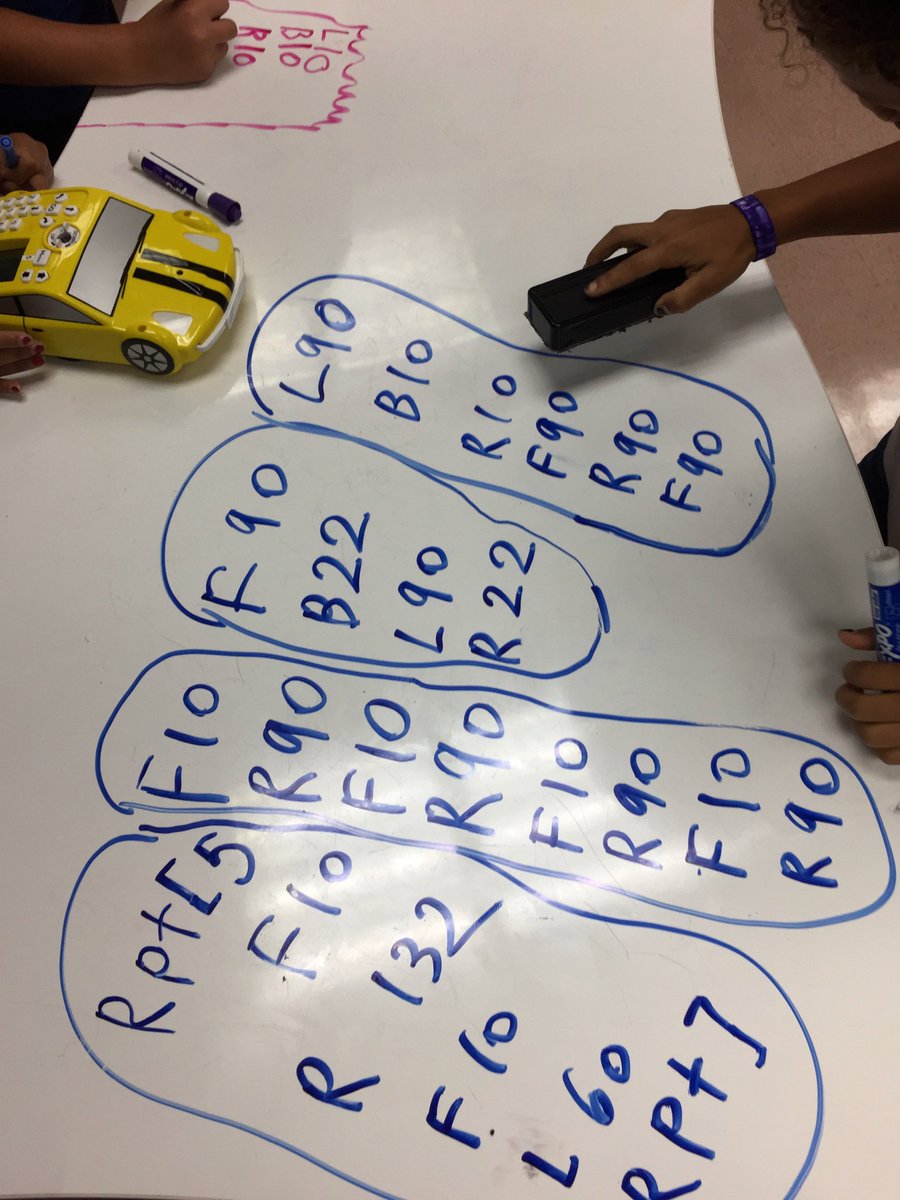 L10
B10
R10
L90
B10
R10
F90
R90
F90
F90
B22
L90
R22
F10
R90
F10
R90
F10
R90
F10
R90
Rpt[5
F10
R 132
F10
L 60
Rpt]
EXPO